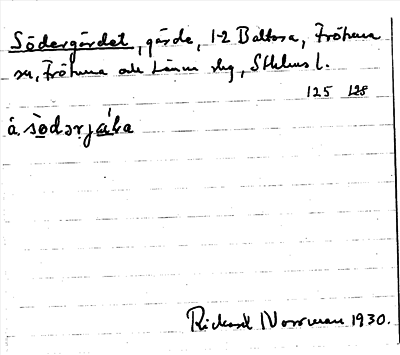 Södergärdet, gärde, 1-2 Baltorp, Frötuna
sn, Frötuna och Länna slg, Sthlms l.
125 128
Rickard Norrman 1930.